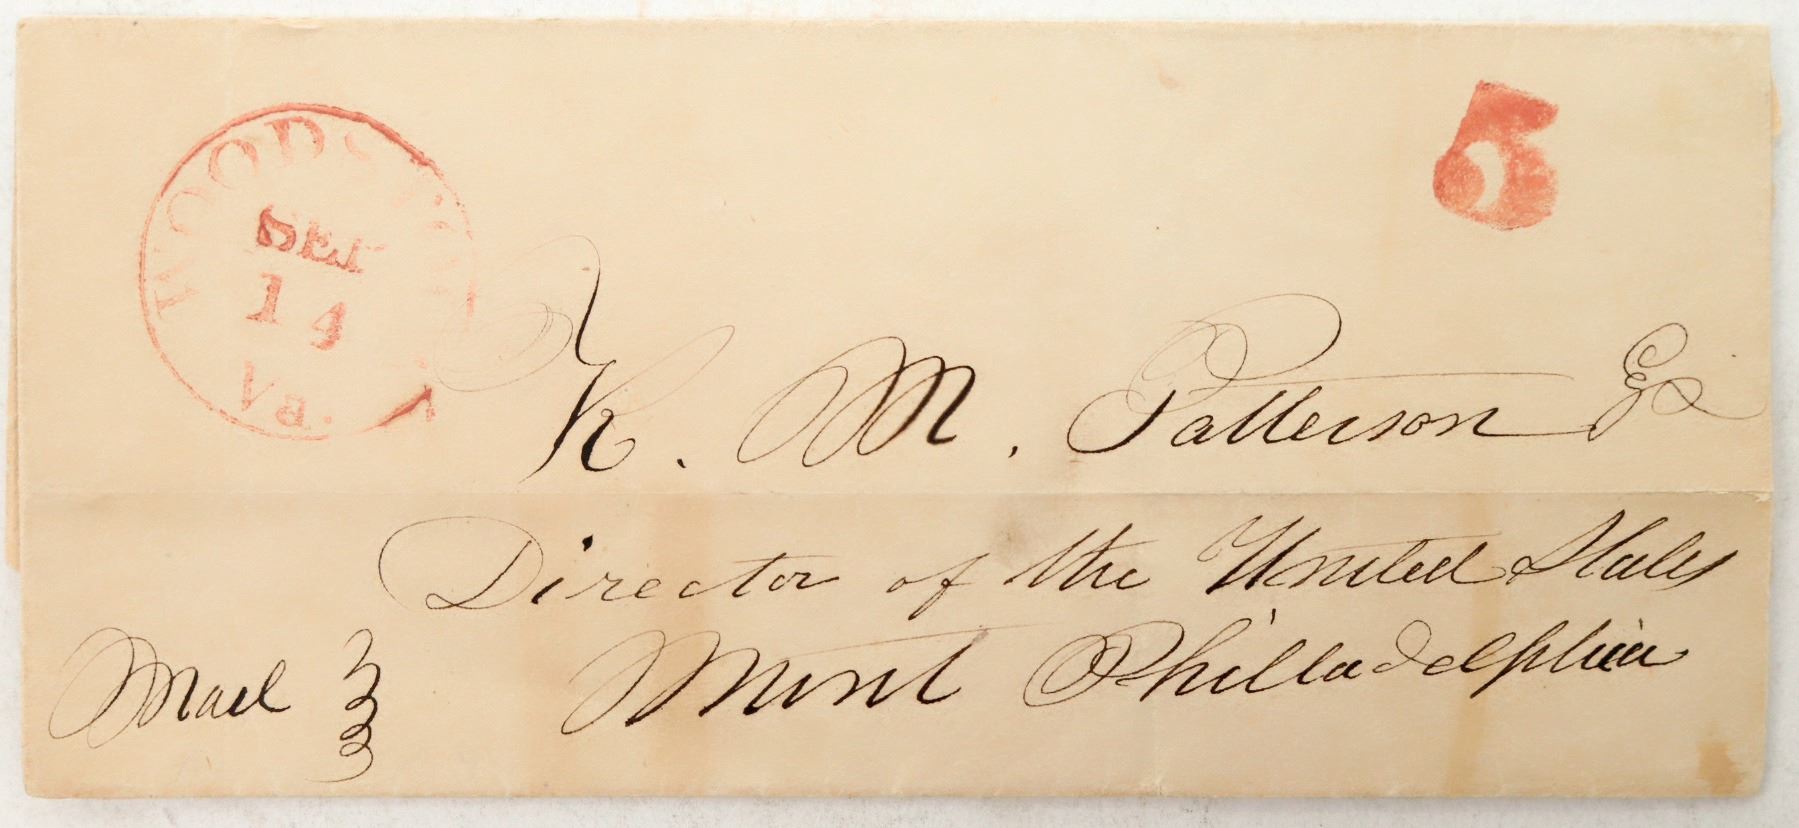 WOODSTOCK
SEP
14
Va.
5
R. M. Patterson Esq
Director of the United States
Mint Philladelphia
Mail